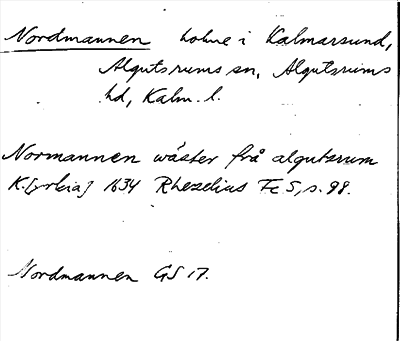 Nordmannen holme i Kalmarsund,
Algutsrums sn, Algutsrums
hd, Kalm. l.
Normannen wäster frå algutzrum
K.[yrkia] 1634 Rhezelius Fc 5, s. 98.
Nordmannen GS 17.